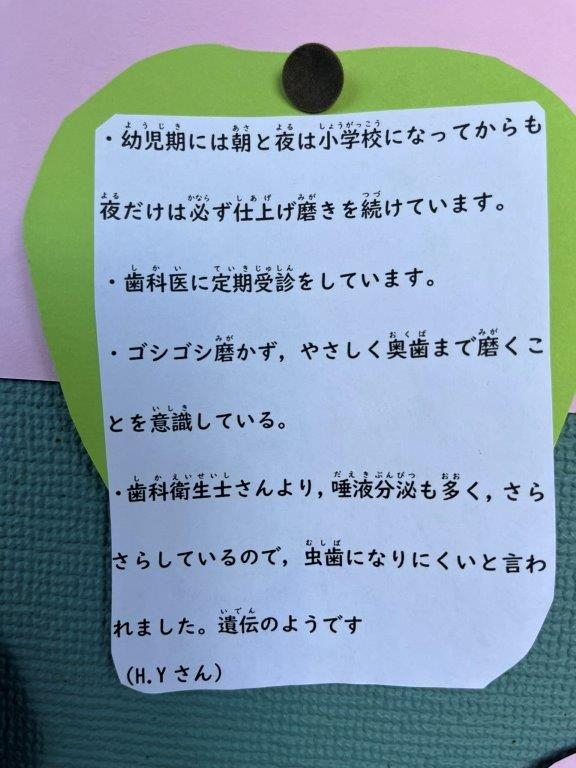 ・幼児期には朝と夜は小学校になってからも
夜だけは必ず仕上げ磨きを続けています。
・歯科医に定期受診をしています。
・ゴシゴシ磨かず，やさしく奥歯まで磨くこ
とを意識している。
・歯科衛生士さんより，唾液分泌も多く，さら
さらしているので，虫歯になりにくいと言わ
れました。遺伝のようです
（H.Yさん）